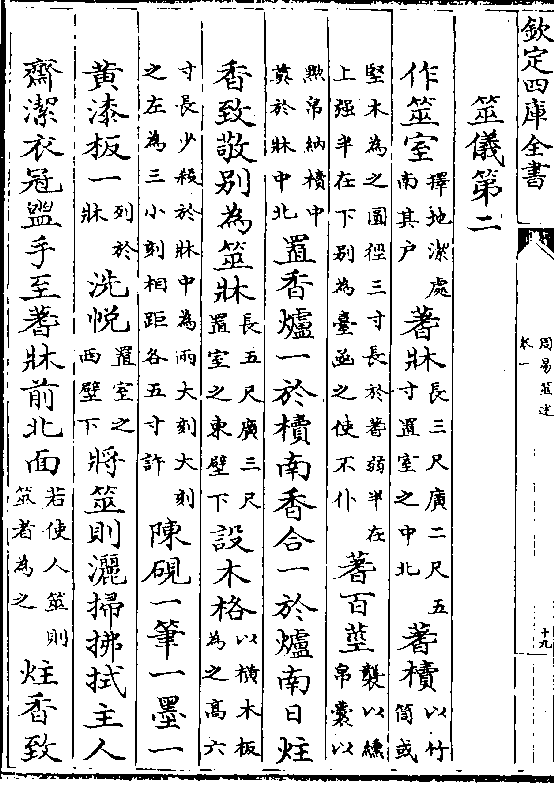 欽定四庫全書
周易筮述
卷一
十九
筮儀第二
作筮室擇地潔處南其戶蓍牀長三尺廣二尺五寸置室之中北蓍櫝以竹筒或
堅木為之圓徑三寸長於蓍弱半在上强半在下别為臺函之使不仆蓍百莖襲以纁帛囊以
黝帛納櫝中奠於牀中北置香爐一於櫝南香合一於爐南日炷
香致敬别為筮牀長五尺廣三尺置室之東壁下設木格以橫木板為之高六
寸長少殺於牀中為兩大刻大刻之左為三小刻相距各五寸許陳硯一筆一墨一
黃漆板一列於牀洗帨置室之西壁下將筮則灑掃拂拭主人
齋潔衣冠盥手至蓍牀前北面若使人筮則筮者為之炷香致